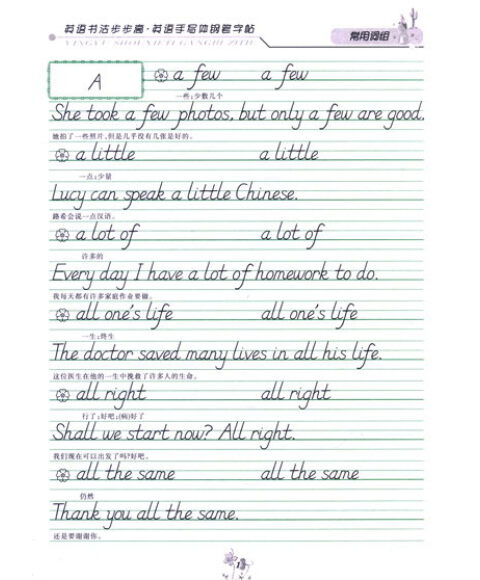 英语书法步步高·英语手写体钢笔字帖
常用词组
A
a few a few
一些;少数几个
She took a few photos, but only a few are good.
她拍了一些照片,但是几乎没有几张是好的。
a little a little
一点;少量
Lucy can speak a little Chinese.
路希会说一点汉语。
a lot of a lot of
许多的
Every day I have a lot of homework to do.
我每天都有许多家庭作业要做。
all one's life all one's life
一生;终生
The doctor saved many lives in all his life.
这位医生在他的一生中挽救了许多人的生命。
all right all right
行了;好吧;(病)好了
Shall we start now? All right.
我们现在可以出发了吗?好吧。
all the same all the same
仍然
Thank you all the same.
还是要谢谢你。
1